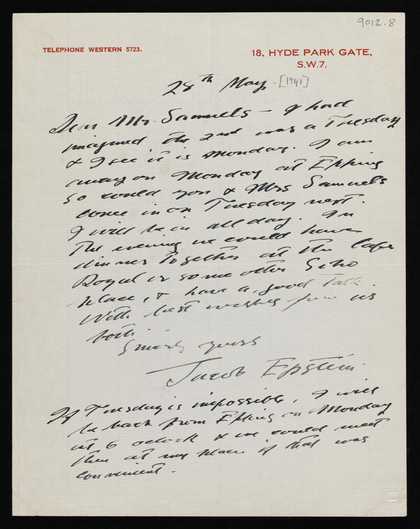 9012.8
TELEPHONE WESTERN 5723.
18, HYDE PARK GATE,
S.W.7.
28th May. [1941]
Dear Mr. Samuels – I had
imagined the 2nd was a Tuesday
& I see it is Monday. I am
away on Monday at Epping
so could you & Mrs Samuels
come in on Tuesday next
I will be in all day. In
the evening we could have
dinner together at the Cafe
Royal or some other Soho
place, & have a good talk.
With best wishes from us
both.
Sincerely yours
Jacob Epstein
If Tuesday is impossible, I will
be back from Epping on Monday
at 6 oclock & we could meet
then at my place if that was
convenient.